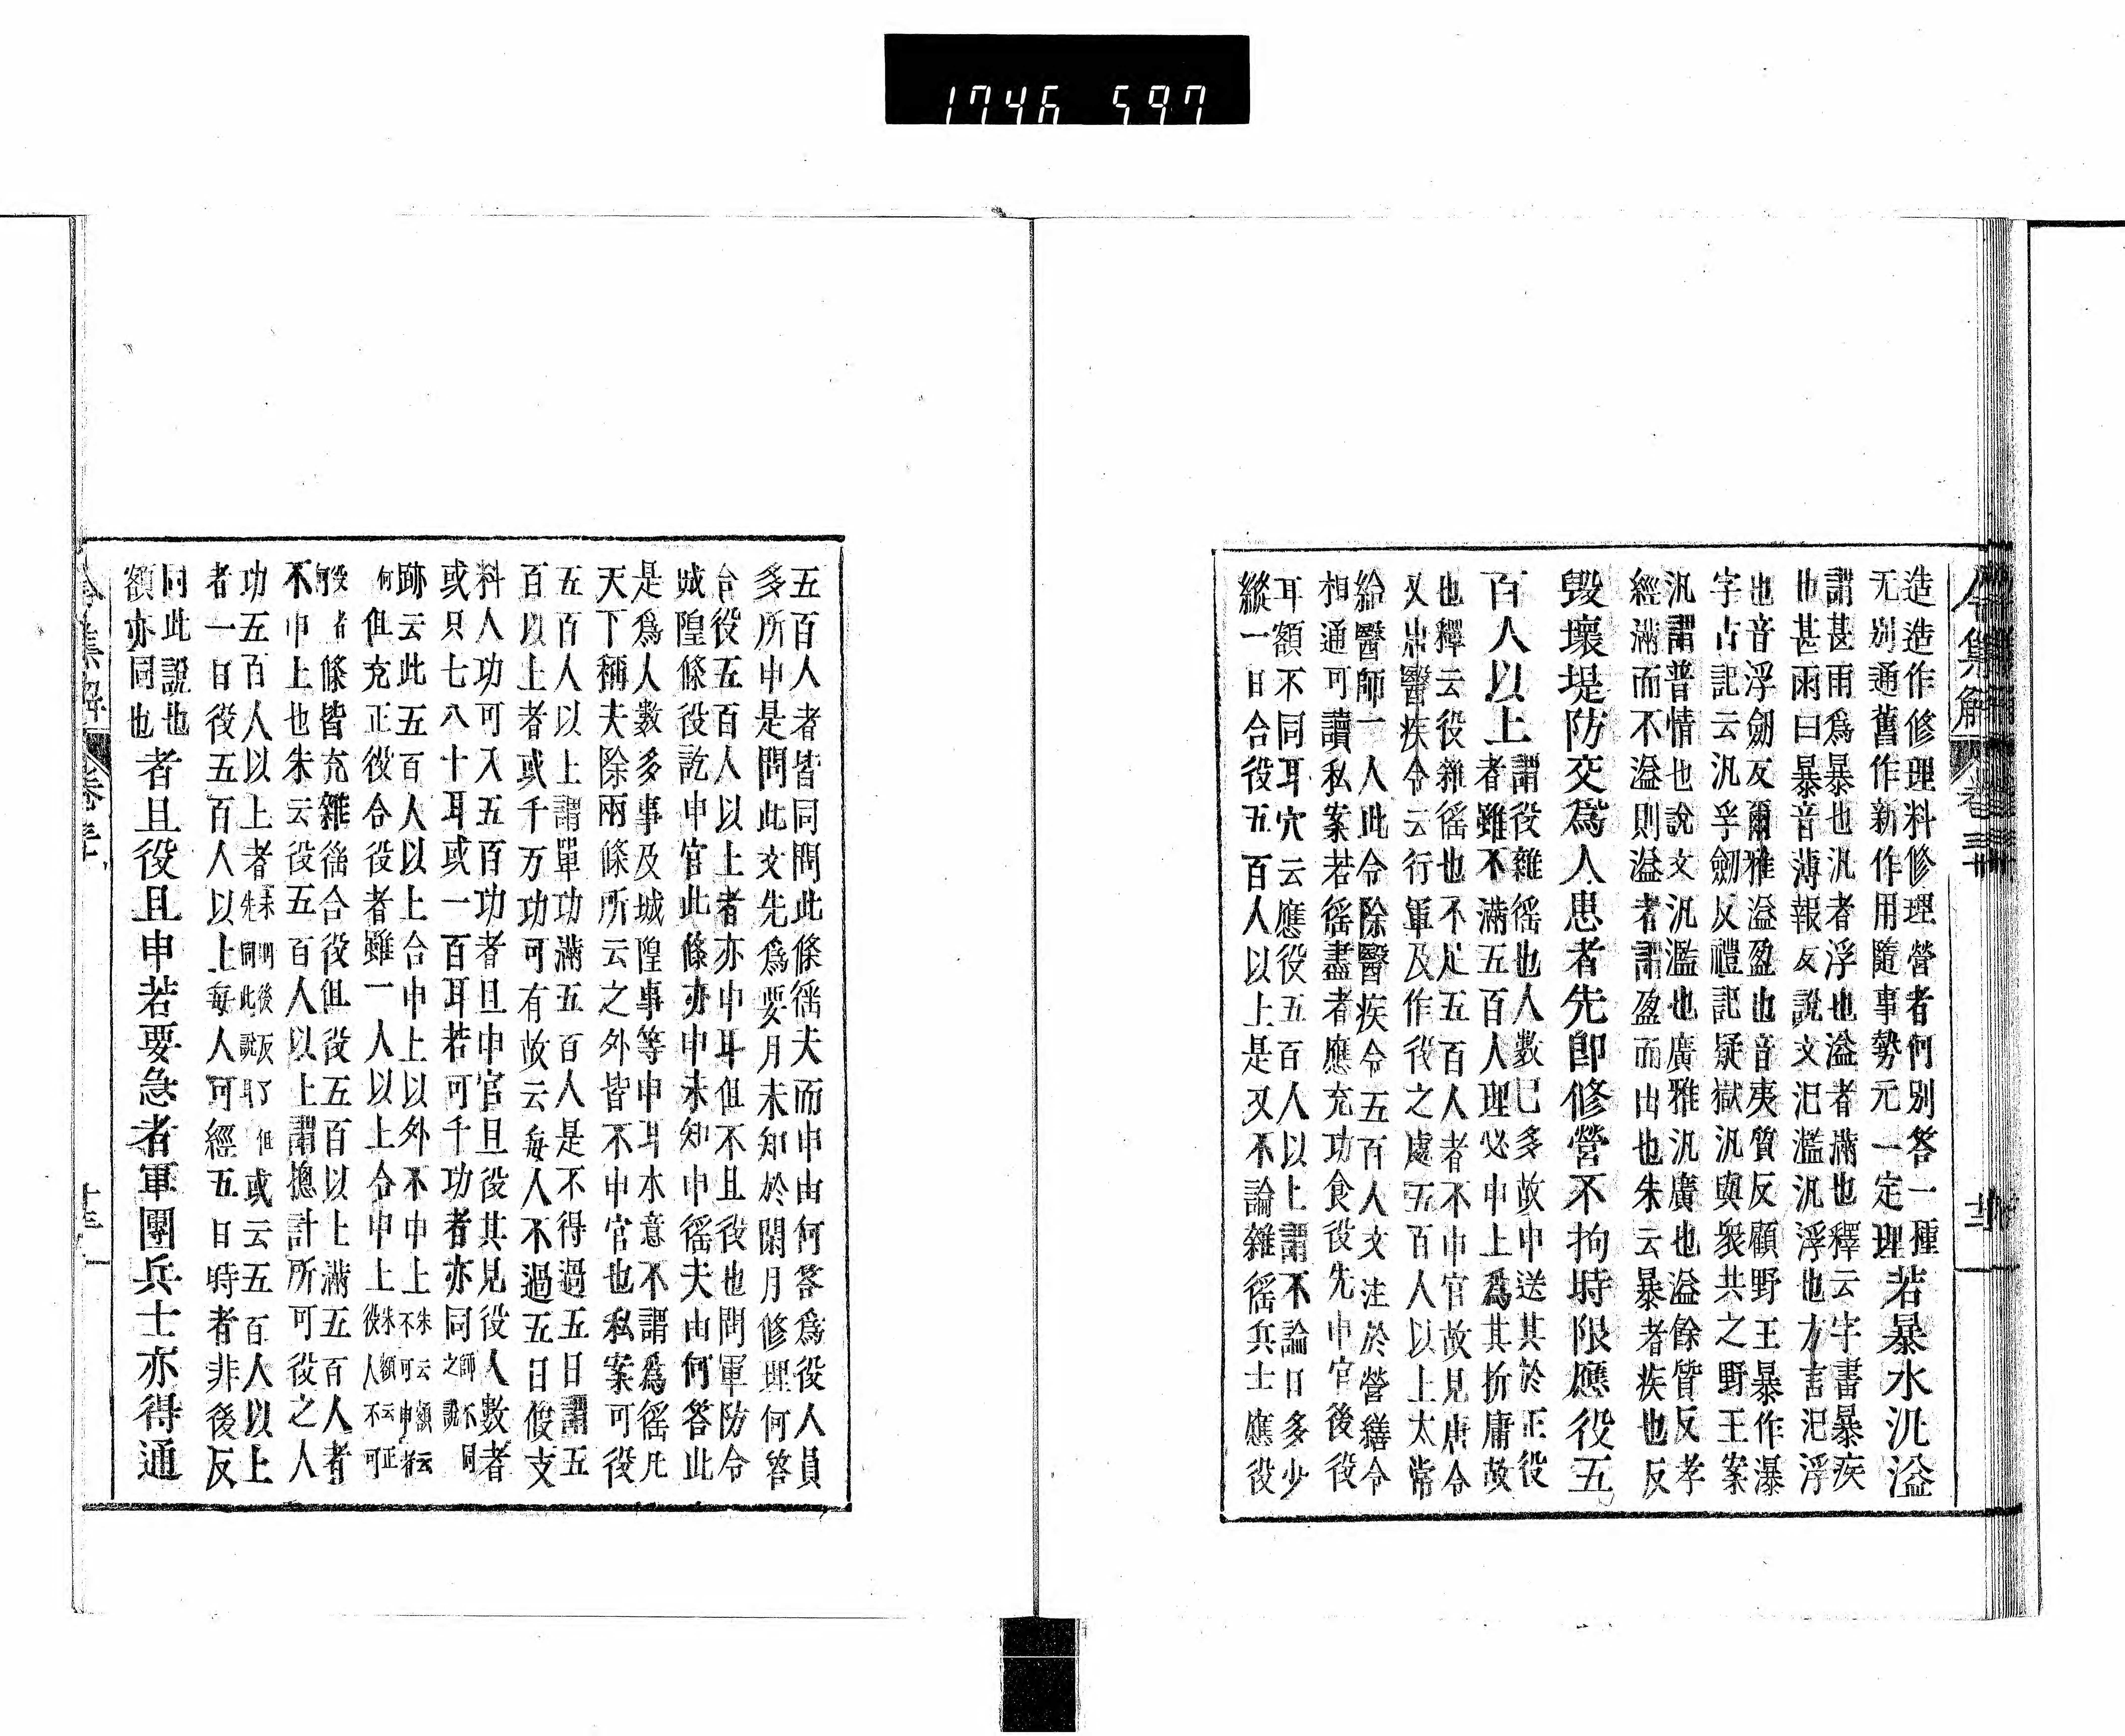 令集解 卷三十
造造作修理料修理營者何別答一種
无別通舊作新作用隨事勢元一定理
若暴水汎溢
謂甚雨爲暴也汎者浮也溢者滿也釋云字書暴疾
也甚雨曰暴音薄報反說文汜濫汎浮也方言汜浮
也音浮劒反爾雅溢盈也音夷質反顧野王暴作瀑
字古記云汎孚劒反禮記疑獄汎與衆共之野王案
汎謂普情也說文汎濫也廣雅汎廣也溢餘質反孝
經滿而不溢則溢者謂盈而出也朱云暴者疾也反
毀壞堤防交爲人患者先即修營不拘時限應役五
百人以上
謂役雜徭也人數已多故申送其於正役
者雖不滿五百人理必申上爲其折庸故
也釋云役雜徭也不足五百人者不申官故見唐令
又唐醫疾令云行軍及作役之處五百人以上太常
給醫師一人此令除醫疾令五百人文注於營繕令
相通可讀私案若徭盡者應充功食役先申官後役
耳額不同耳穴云應役五百人以上謂不論日多少
縱一日合役五百人以上是又不論雜徭兵士應役
五百人者皆同問此條徭夫而申由何答爲役人員
多所申是問此文先爲要月未知於閑月修理何答
合役五百人以上者亦申耳但不且役也問軍防令
城隍條役訖申官此條亦申未知申徭夫由何答此
是爲人數多事及城隍事等申耳水意不謂爲徭凡
天下稱夫除兩條所云之外皆不申官也私案可役
五百人以上謂單功滿五百人是不得過五日謂五
百以上者或千万功可有故云每人不過五日假支
料人功可入五百功者且申官且役其見役人數者
或只七八十耳或一百耳若可千功者亦同
師不同
之說
跡云此五百人以上合申上以外不申上
朱云額云
不可申者
何但充正役合役者雖一人以上合申上
朱額云正
役人不可
役者條皆充雜徭合役但役五百以上滿五百人者
不申上也朱云役五百人以上謂摠計所可役之人
功五百人以上者
未明後反了但
先同此說耳
或云五百人以上
者一日役五百人以上每人可經五日時者非後反
同此說也
額亦同也
者且役且申若要急者軍團兵士亦得通
令集解 卷三十